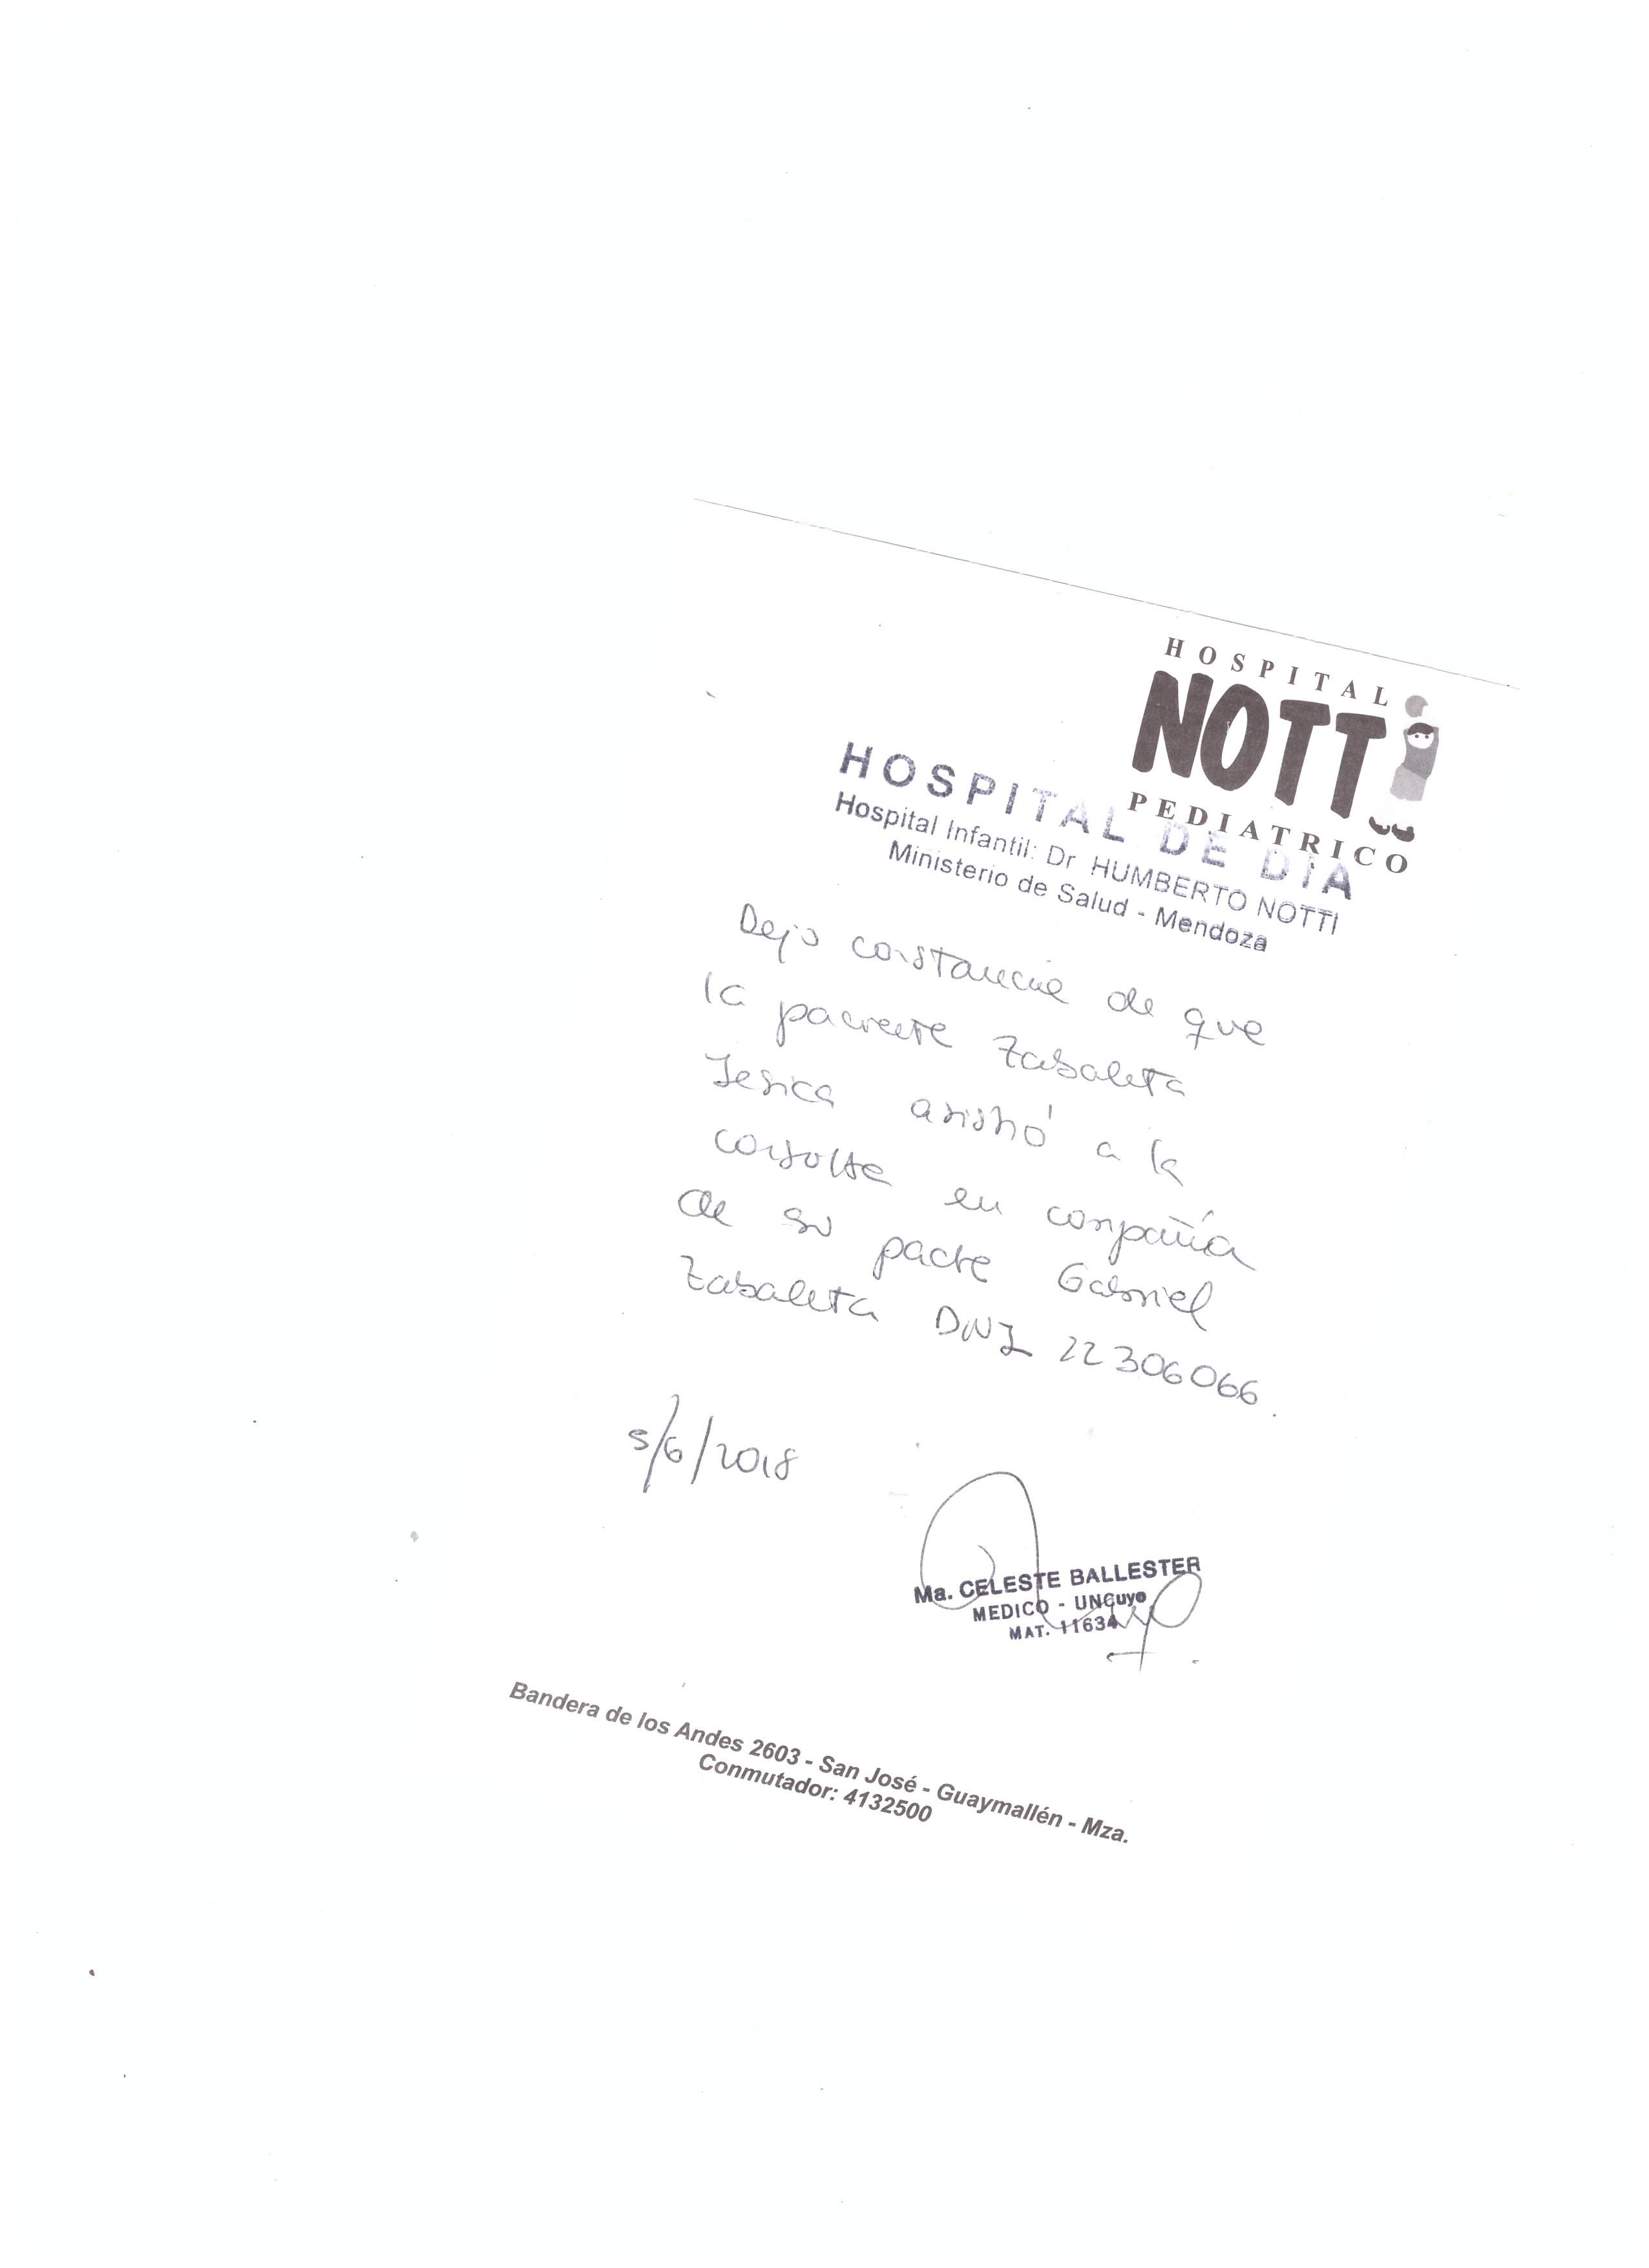 HOSPITAL
NOTTI
PEDIATRICO
HOSPITAL DE DIA
Hospital Infantil: Dr HUMBERTO NOTTI
Ministerio de Salud - Mendoza
Dejo constancia de que
la paciente Zabaleta
Jesica asistió a la
consulta en compañía
de su padre Gabriel
Zabaleta DNI 22306066.
5/6/2018
Ma. CELESTE BALLESTER
MEDICO - UNCuyo
MAT. 11634
Bandera de los Andes 2603 - San José - Guaymallén - Mza.
Conmutador: 4132500